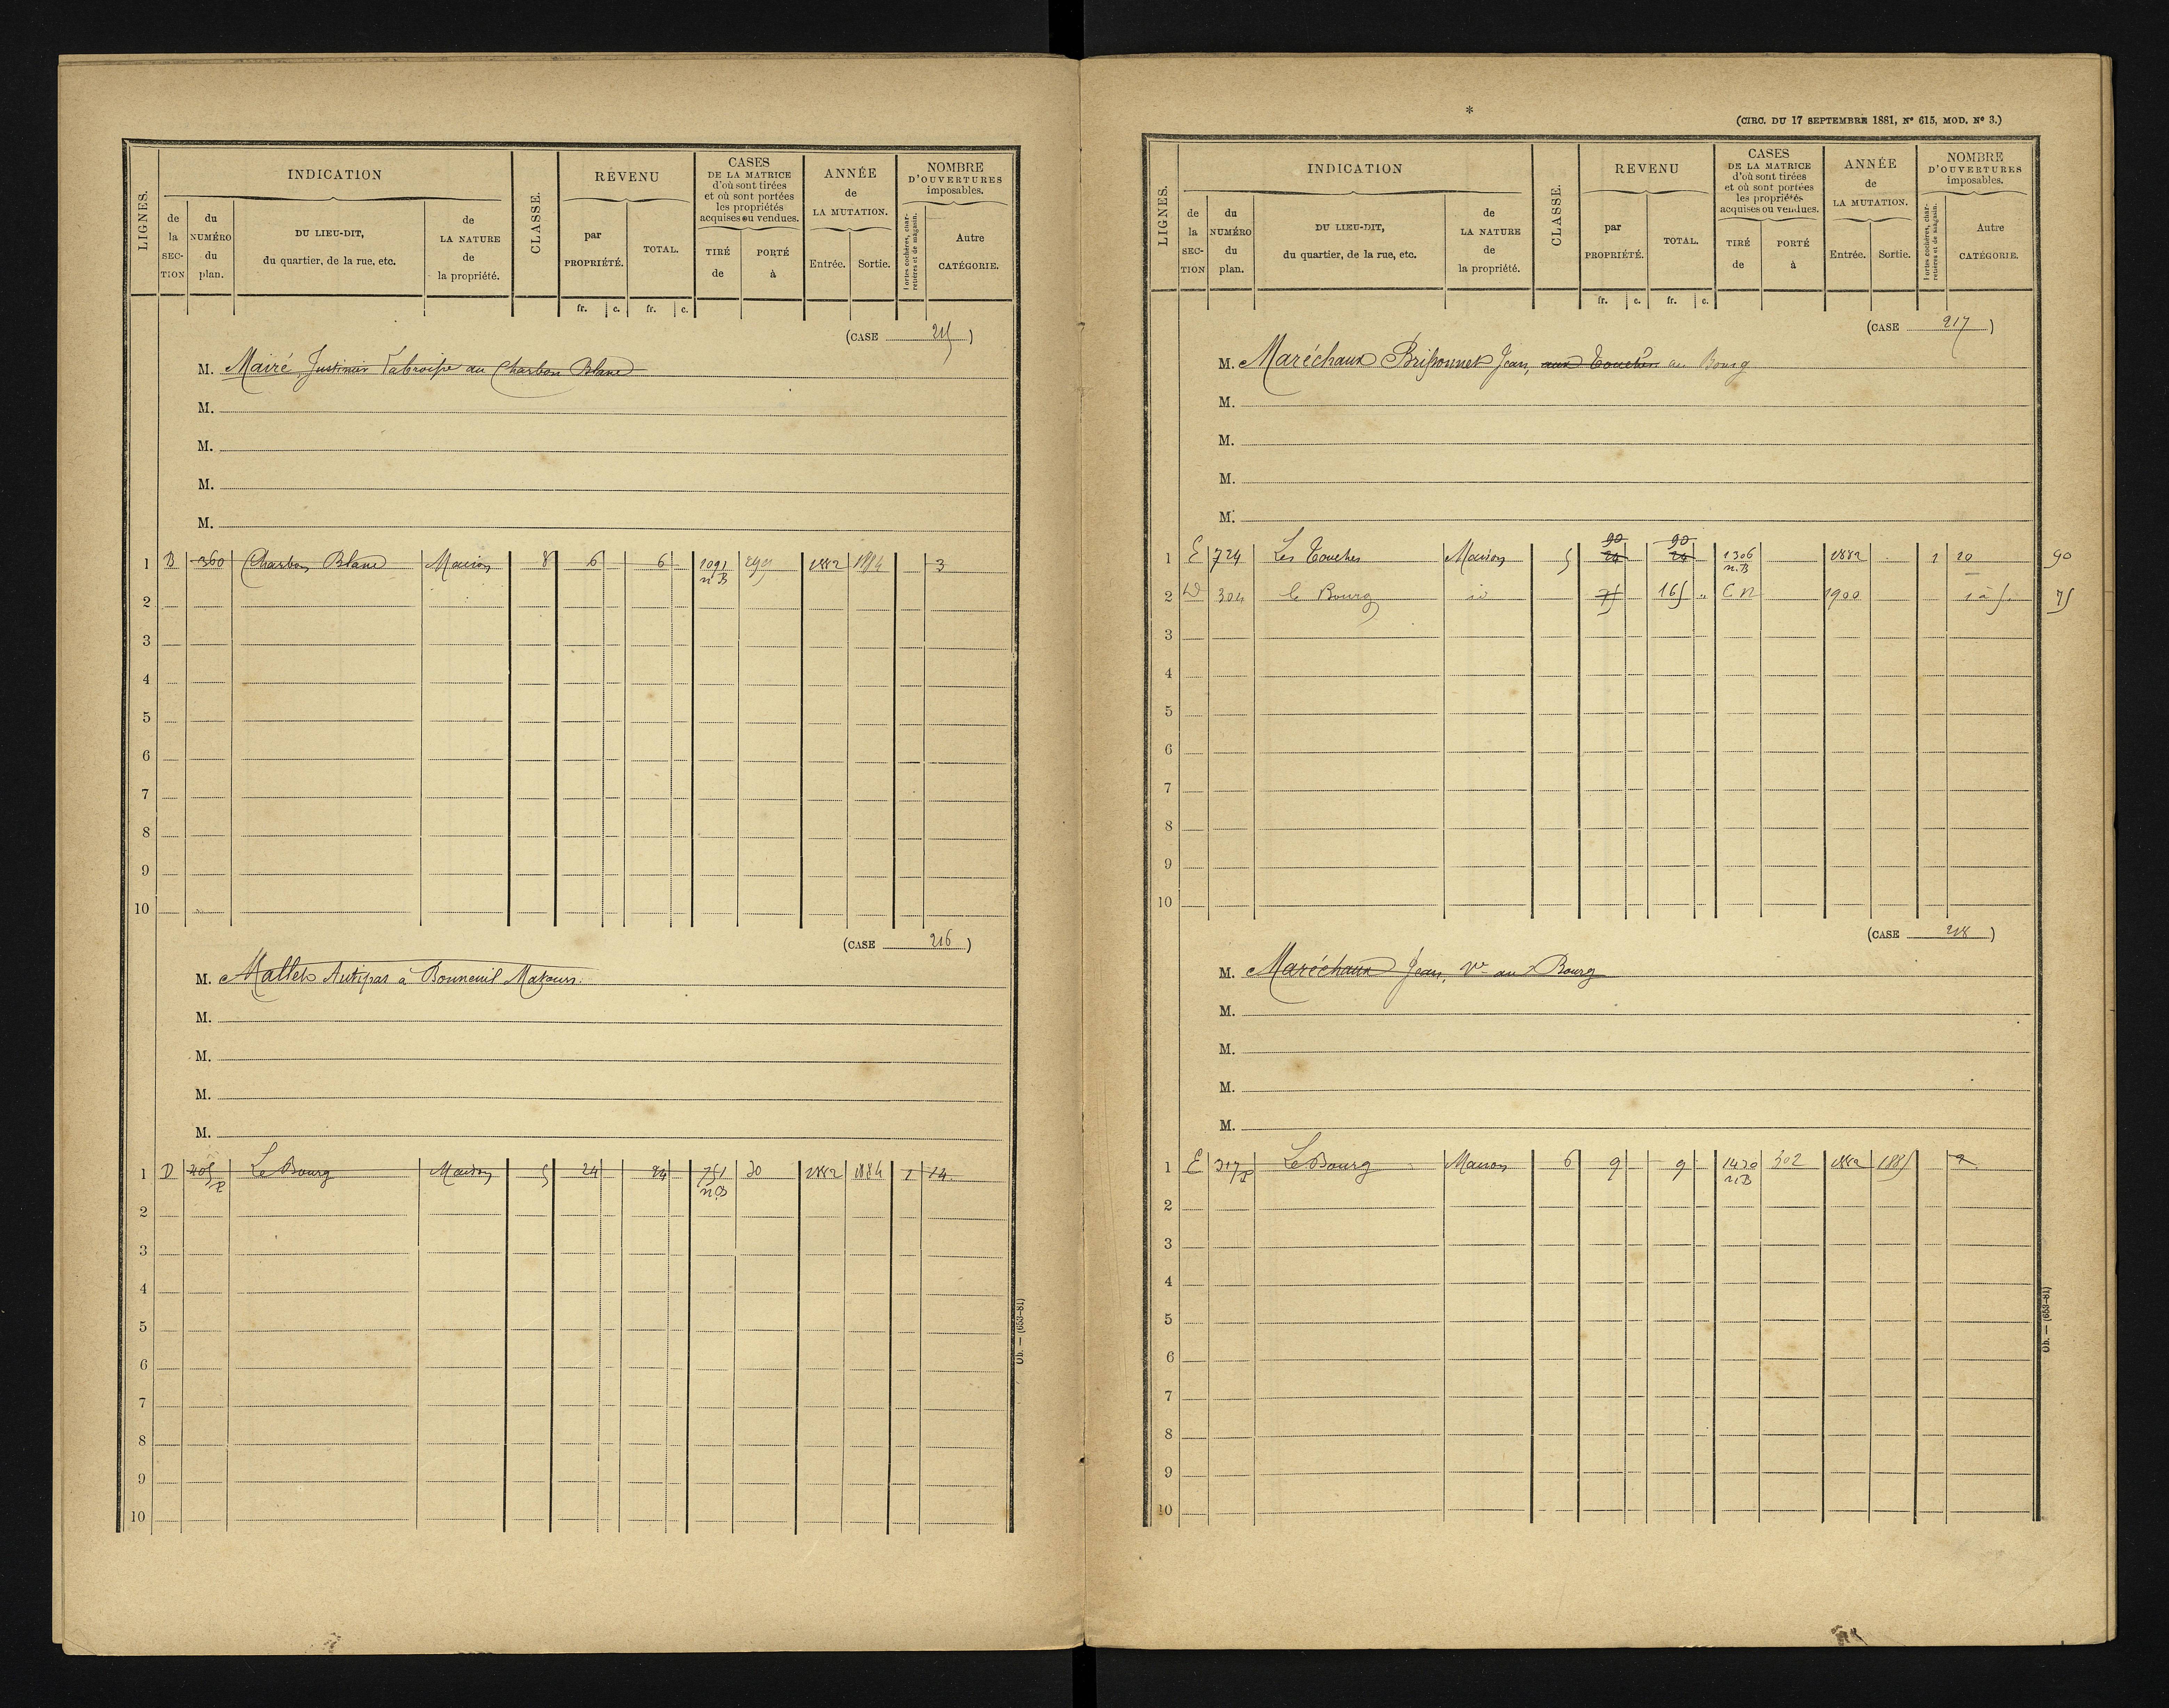 INDICATION
REVENU
CASES
DE LA MATRICE
d'où sont tirées
et où sont portées
les propriétés
acquises ou vendues.
ANNÉE
de
LA MUTATION.
NOMBRE
D'OUVERTURES
imposables.
LIGNES.
de la SECTION
du NUMÉRO du plan.
DU LIEU-DIT,
du quartier, de la rue, etc.
de LA NATURE de la propriété.
CLASSE.
par PROPRIÉTÉ.
TOTAL.
TIRÉ de
PORTÉ à
Entrée.
Sortie.
Portes cochères, charretières et de magasin.
Autre CATÉGORIE.
fr. c. fr. c.
(CASE 215)
M. Mairé, Justinien au Charbon Blanc
M.
M.
M.
M.
1 B 360 Charbon Blanc Maison 8 6 6 1091 n.B 1882 1884 3
2
3
4
5
6
7
8
9
10
(CASE 216)
M. Mallet à Bonneuil Matours.
M.
M.
M.
M.
1 D 205 p Le Bourg Maison 5 24 24 751 n.B 30 1882 1884 1 14
2
3
4
5
6
7
8
9
10
Ob. — (653-81)
*
(CIRC. DU 17 SEPTEMBRE 1881, N° 615, MOD. N° 3.)
INDICATION
REVENU
CASES
DE LA MATRICE
d'où sont tirées
et où sont portées
les propriétés
acquises ou vendues.
ANNÉE
de
LA MUTATION.
NOMBRE
D'OUVERTURES
imposables.
LIGNES.
de la SECTION
du NUMÉRO du plan.
DU LIEU-DIT,
du quartier, de la rue, etc.
de LA NATURE de la propriété.
CLASSE.
par PROPRIÉTÉ.
TOTAL.
TIRÉ de
PORTÉ à
Entrée.
Sortie.
Portes cochères, charretières et de magasin.
Autre CATÉGORIE.
fr. c. fr. c.
(CASE 217)
M. Maréchaux Brissonnet Jean, aux Touches au Bourg
M.
M.
M.
M.
90 90
1 E 724 Les Touches Maison 5 24 24 1306 n.B 1882 1 20 90
2 D 304 le Bourg id 75 165 " C N 1900 1 à 5. 75
3
4
5
6
7
8
9
10
(CASE 218)
M. Maréchaux Jean, Ve au Bourg
M.
M.
M.
M.
1 E 317 p Le Bourg Maison 6 9 9 1430 n.B 302 1882 1885 2
2
3
4
5
6
7
8
9
10
Ob. — (653-81)